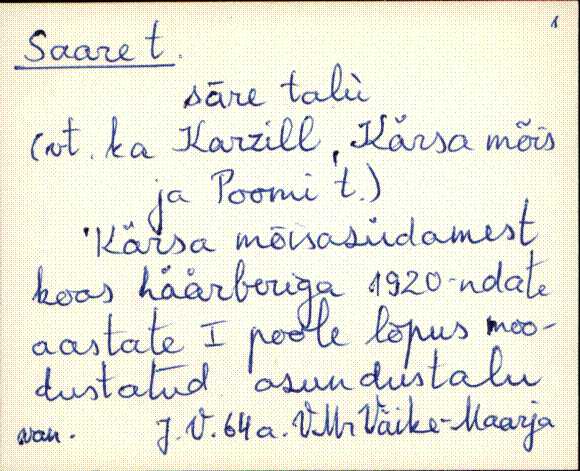 1
Saare t.
sāre talù
(vt. ka Karzill, Kärsa mõis
ja Poomi t.)
'Kärsa mõisasüdamest
koos häärberiga 1920-ndate
aastate I poole lõpus moo-
dustatud asundustalu
J.V. 64 a. VMr Väike-Maarja